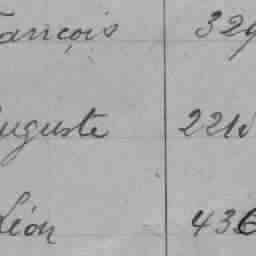 François 329
Auguste 2215
Léon 436